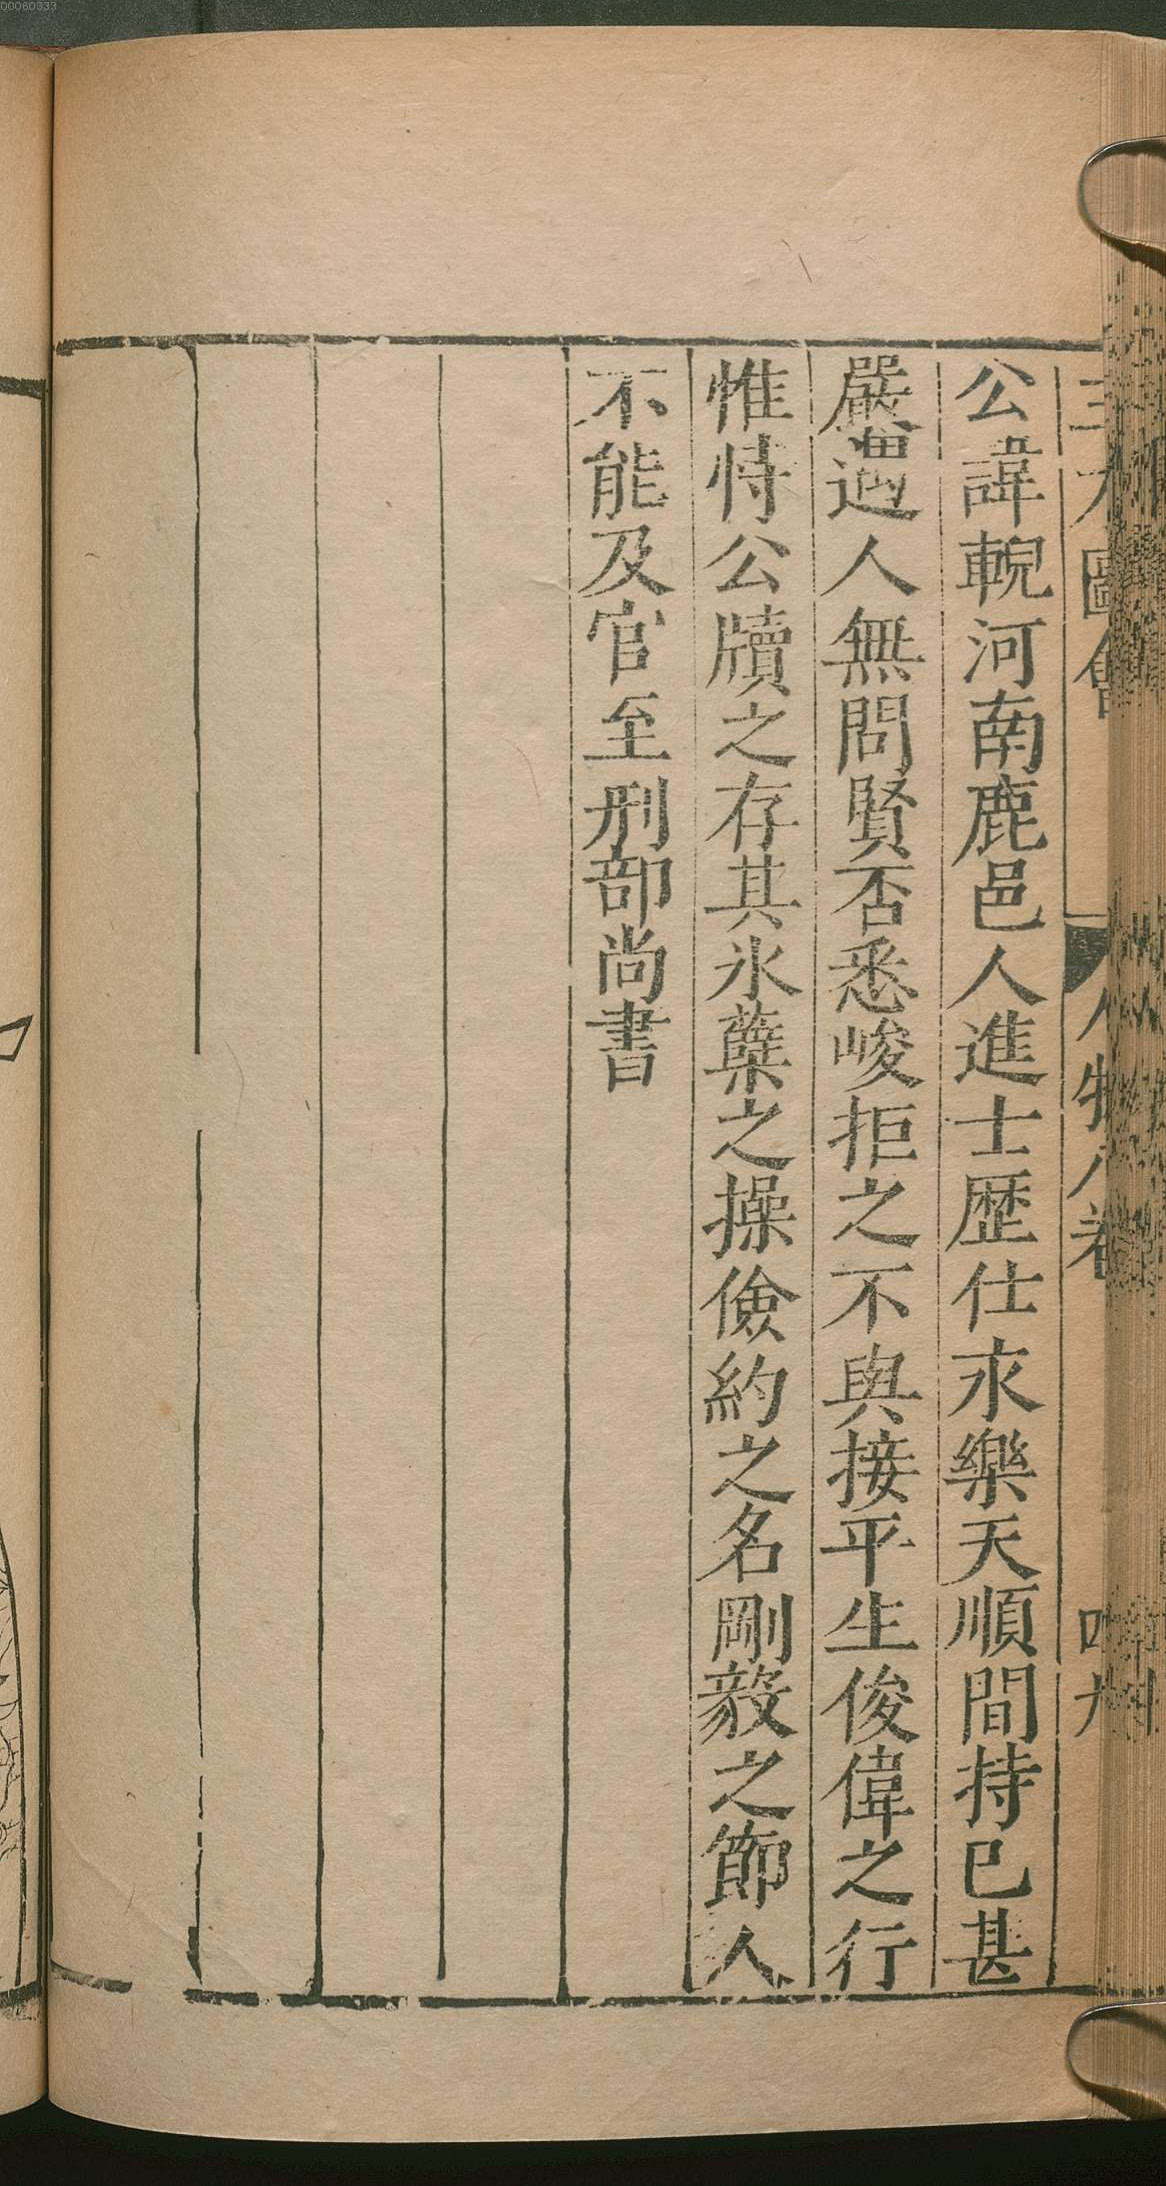 00060333
公諱輗河南鹿邑人進士歷仕永樂天順間持已甚
嚴遇人無問賢否悉峻拒之不與接平生俊偉之行
惟恃公牘之存其氷蘖之操儉約之名剛毅之節人
不能及官至刑部尚書